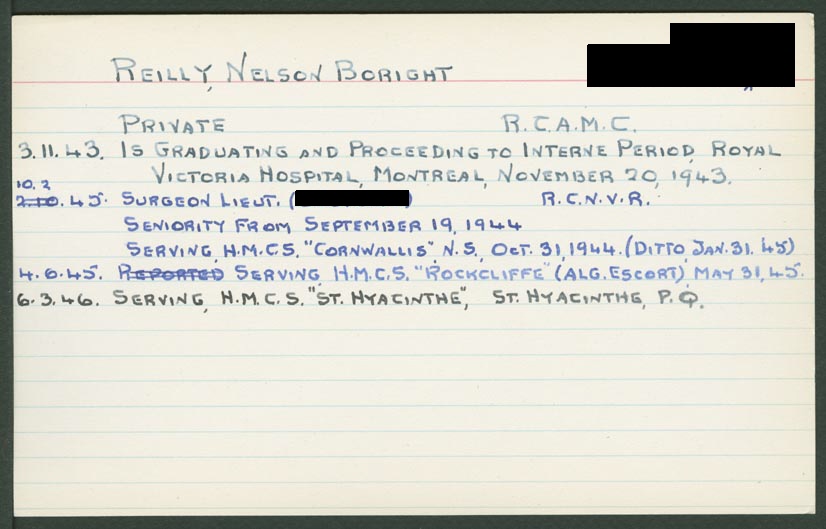 REILLY, NELSON BORIGHT
PRIVATE R.C.A.M.C.
3.11.43. IS GRADUATING AND PROCEEDING TO INTERNE PERIOD, ROYAL
VICTORIA HOSPITAL, MONTREAL, NOVEMBER 20, 1943.
10.2
2.10.45. SURGEON LIEUT. ( ) R.C.N.V.R.
SENIORITY FROM SEPTEMBER 19, 1944
SERVING, H.M.C.S. "CORNWALLIS", N.S., OCT. 31, 1944. (DITTO, JAN. 31. '45)
4.6.45. REPORTED SERVING H.M.C.S. "ROCKCLIFFE" (ALG. ESCORT) MAY 31, 45.
6.3.46. SERVING, H.M.C.S. "ST. HYACINTHE", ST. HYACINTHE, P.Q.